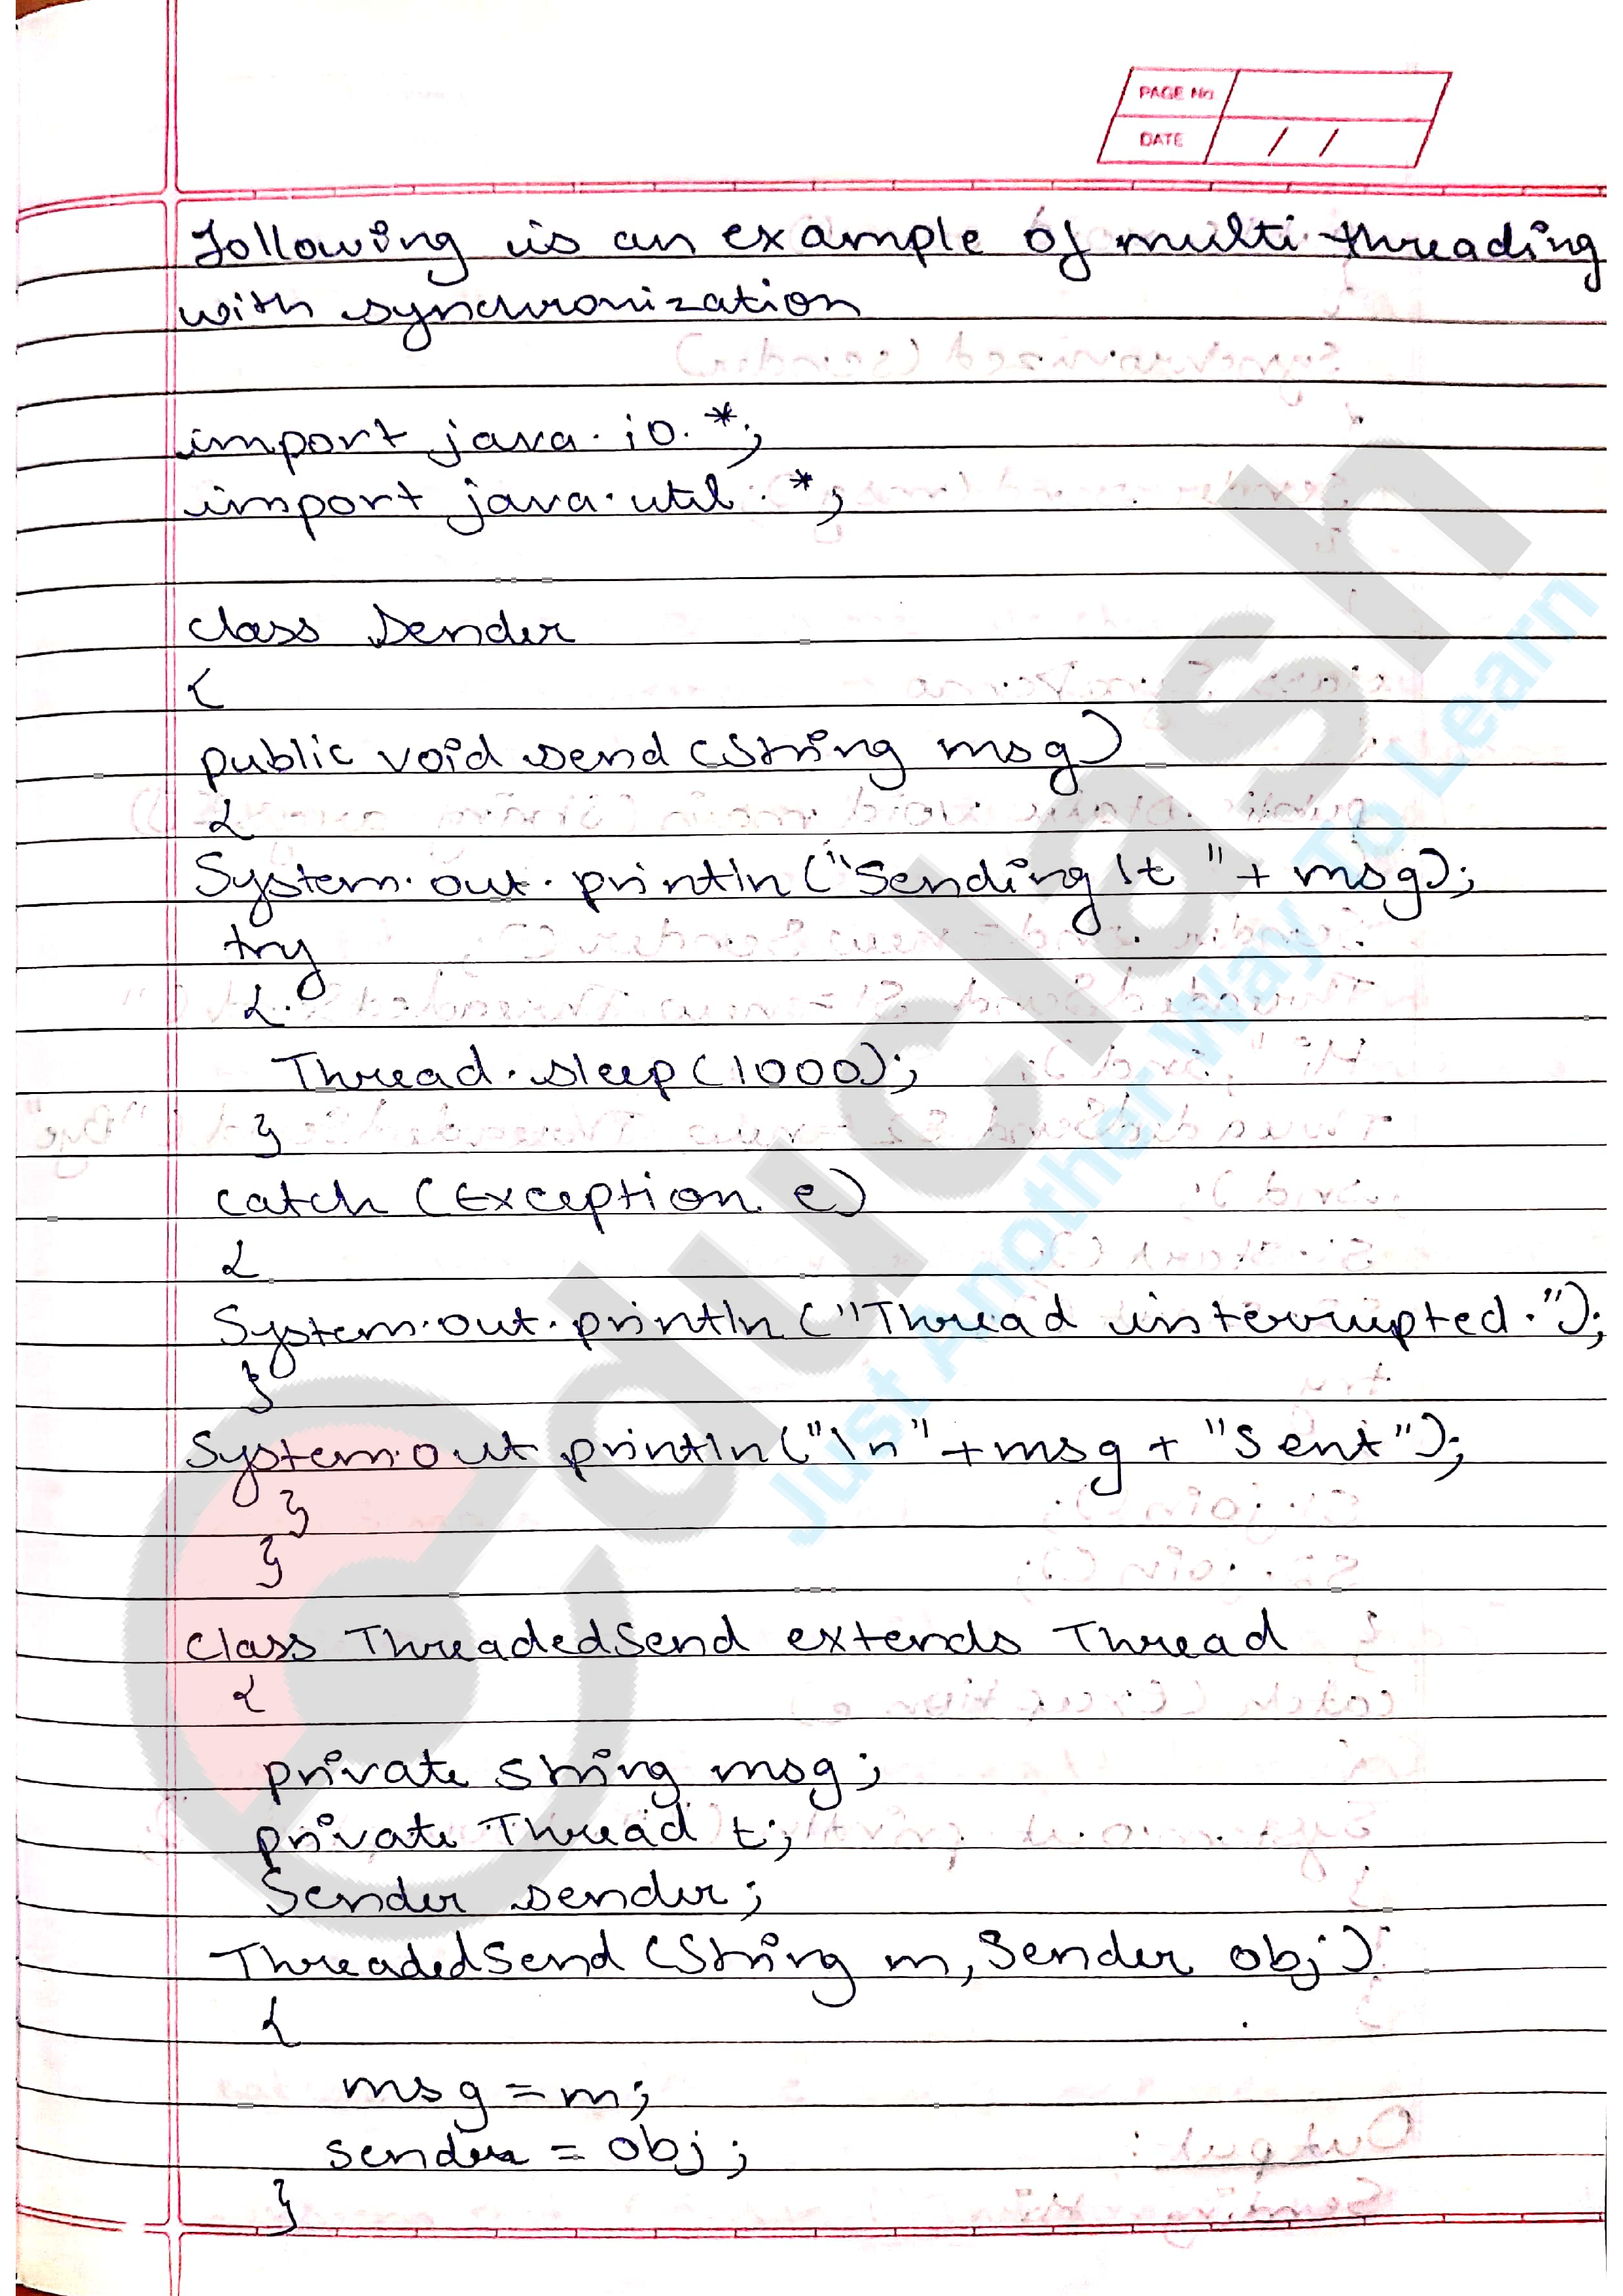 PAGE No
DATE / /
Following is an example of multi threading
with synchronization
import java.io.*;
import java.util.*;
class Sender
{
public void send (String msg)
{
System.out.println ("Sending \t " + msg);
try
{
Thread.sleep (1000);
}
catch (Exception e)
{
System.out.println ("Thread interrupted.");
}
System.out println ("\n" + msg + "Sent");
}
}
class ThreadedSend extends Thread
{
private string msg;
private Thread t;
Sender sender;
ThreadedSend (String m, Sender obj)
{
msg = m;
sender = obj;
}
educlash
Just Another Way To Learn